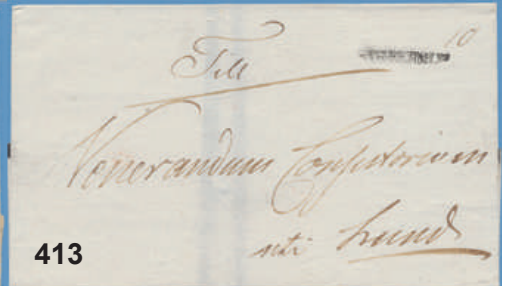 Till
10
Venerandum Consistorium
uti Lund
413